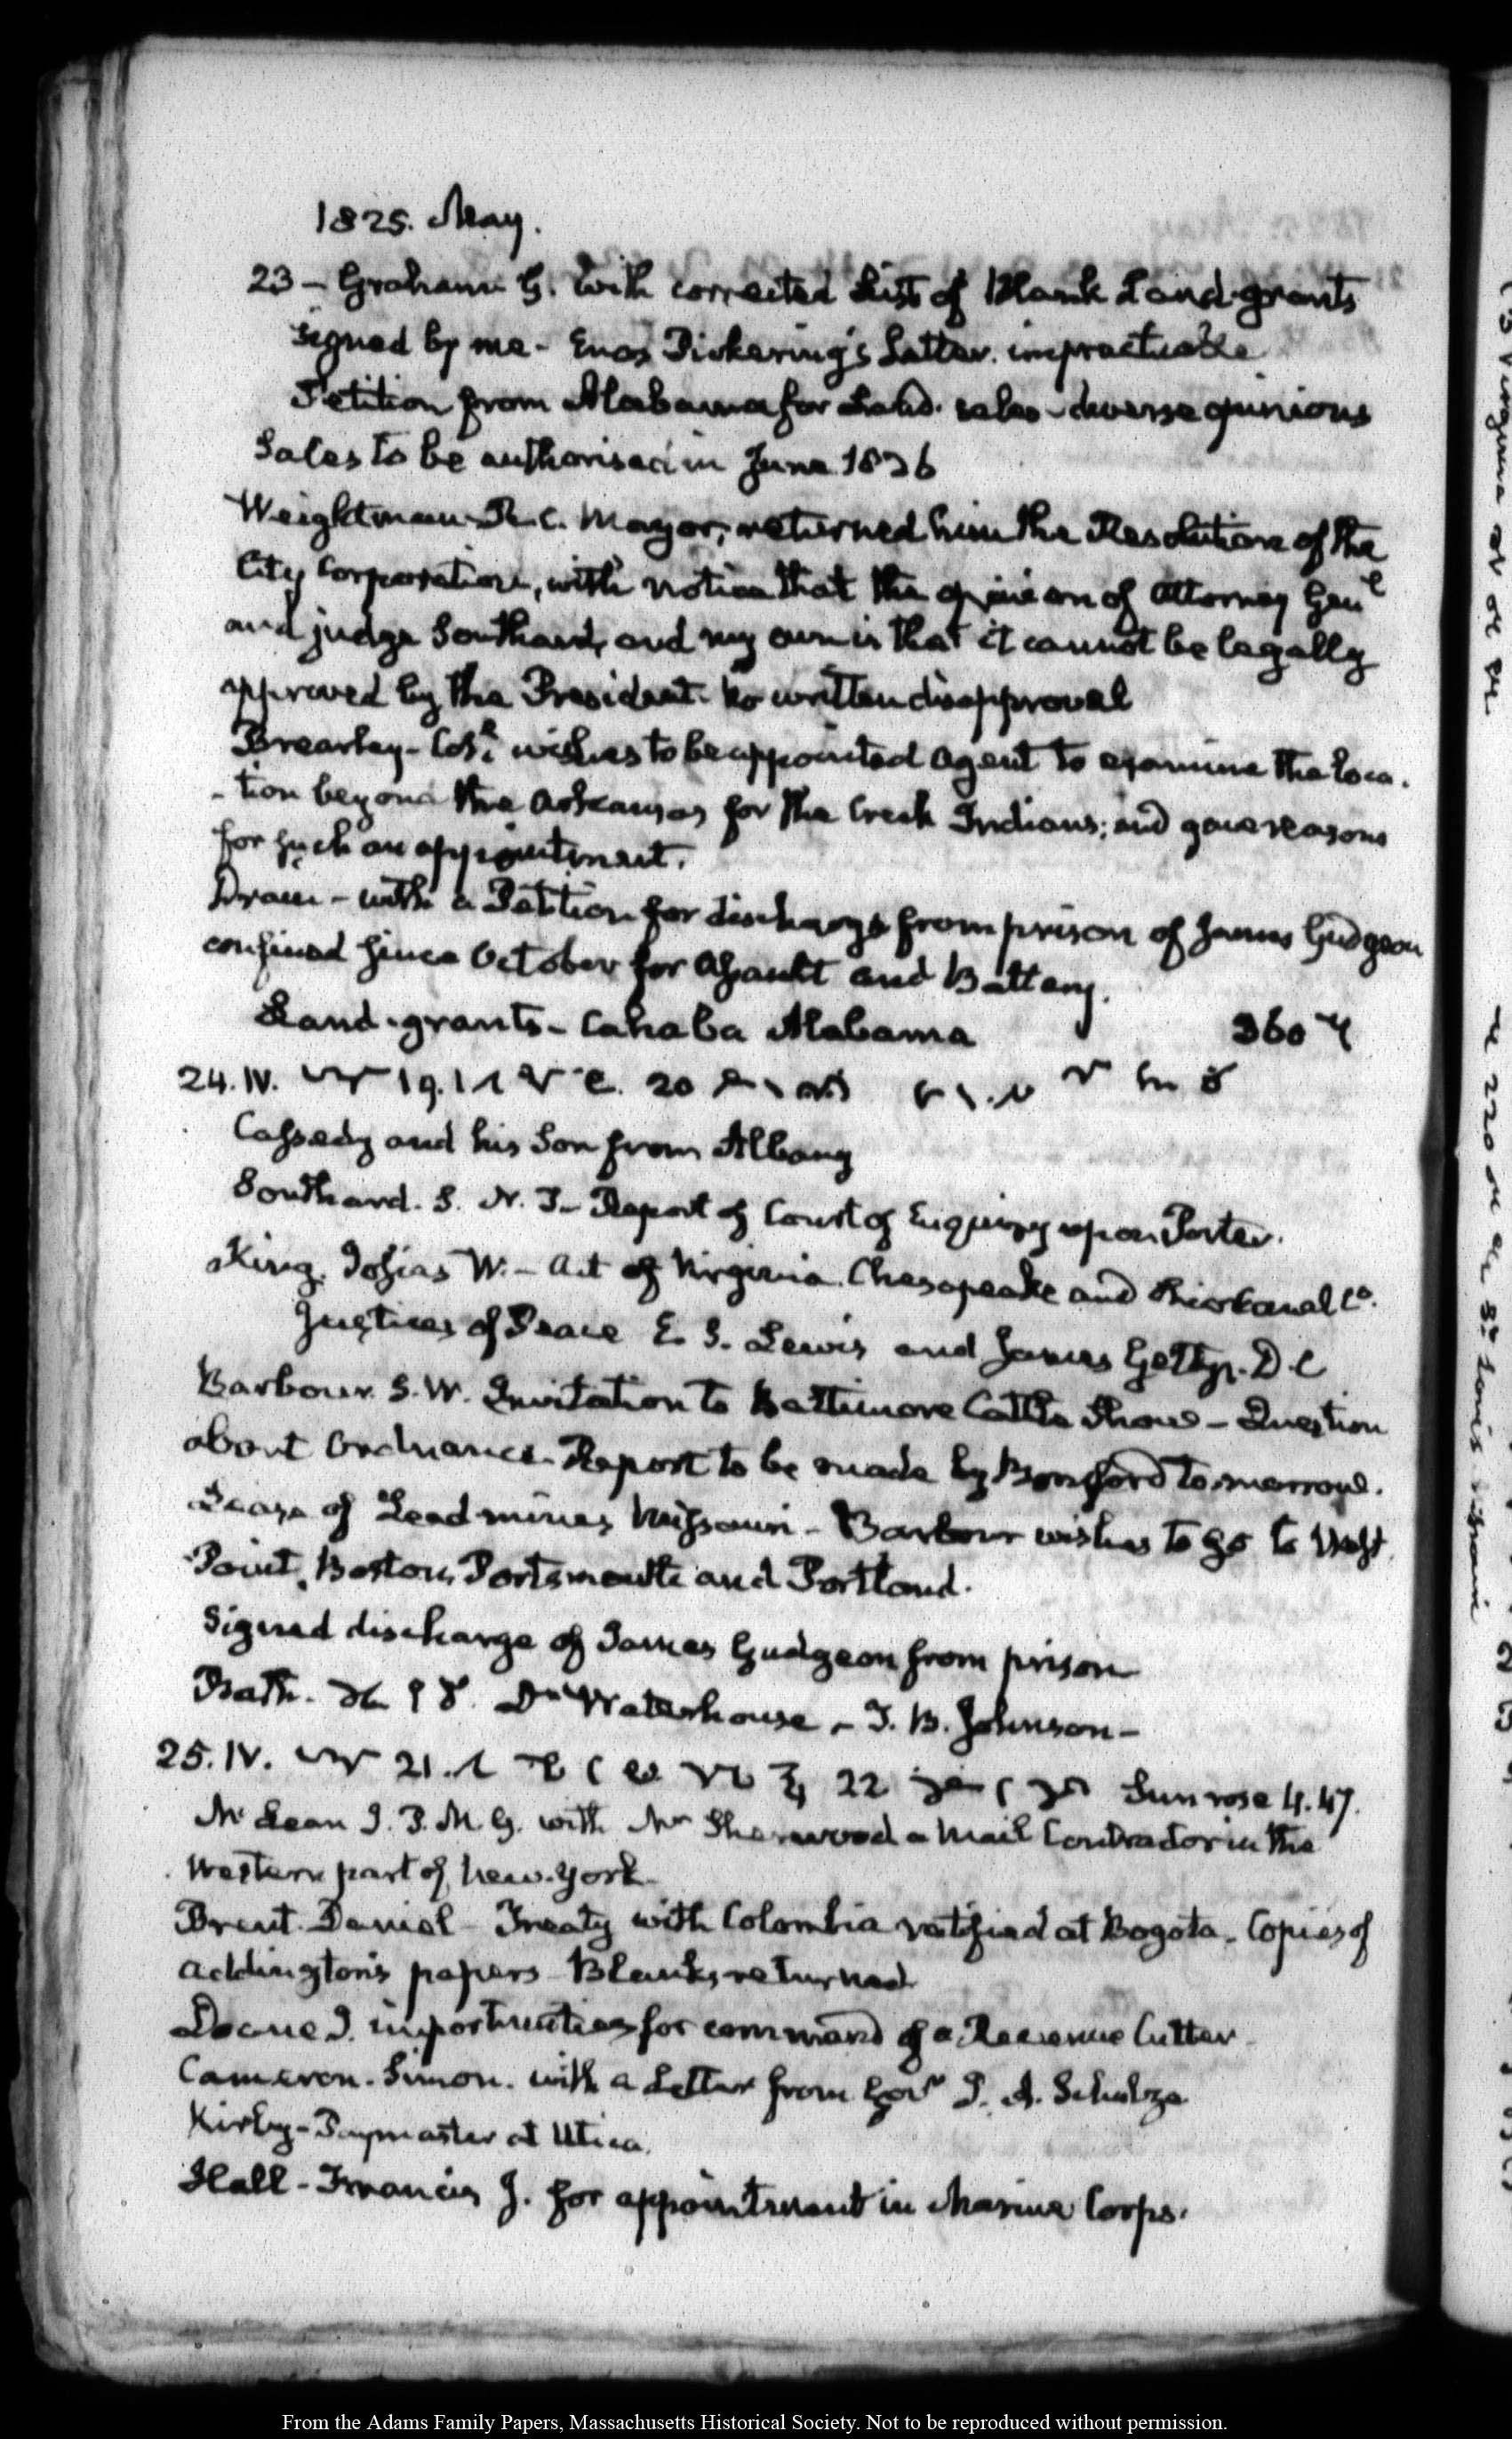 1825. May.
23 – Graham G. with corrected List of Blank Land-grants
signed by me – Enos Pickering's Letter. impracticable
Petition from Alabama for Land sales – diverse opinions
Sales to be authorised in June 1826
Weightman R. C. Mayor, returned him the Resolution of the
City Corporation, with notice that the opinion of Attorney Genl
and judge Southard, and my own is that it cannot be legally
approved by the President. No written disapproval
Brearley – Coll. wishes to be appointed Agent to examine the loca-
-tion beyond the Arkansas for the Creek Indians; and gave reasons
for such an appointment.
– with a Petition for discharge from prison of James Gudgeon
confined since October for Assault and Battery.
Land-grants – Cahaba Alabama 360
24. IV. 19. 20
Cassedy and his Son from Albany
Southard. S. N. – Report of Court of Enquiry upon Porter.
King, Josias W. – Act of Virginia. Chesapeake and Ohio Canal Co.
Justices of Peace E. S. Lewis and James Getty. D. C
Barbour. S. W. Invitation to Baltimore Cattle Show – Question
about Ordnance. Report to be made by Bomford to-morrow.
Lease of Lead-mines Missouri – Barbour wishes to go to West
Point, Boston, Portsmouth and Portland.
Signed discharge of James Gudgeon from prison
Bath. Dr Waterhouse – J. B. Johnson –
25. IV. 21. 22 Sun rose 4.47.
McLean J. P. M. G. with Mr Sherwood a Mail Contractor in the
Western part of New-York
Brent. Daniel – Treaty with Colombia ratified at Bogota. Copies of
Addington's papers – Blanks returned
Doane J. importunities for command of a Revenue Cutter
Cameron. Simon. with a Letter from Govr J. A. Schulze
Kirby – Paymaster at Utica.
Hall – Francis J. for appointment in Marine Corps.
From the Adams Family Papers, Massachusetts Historical Society. Not to be reproduced without permission.